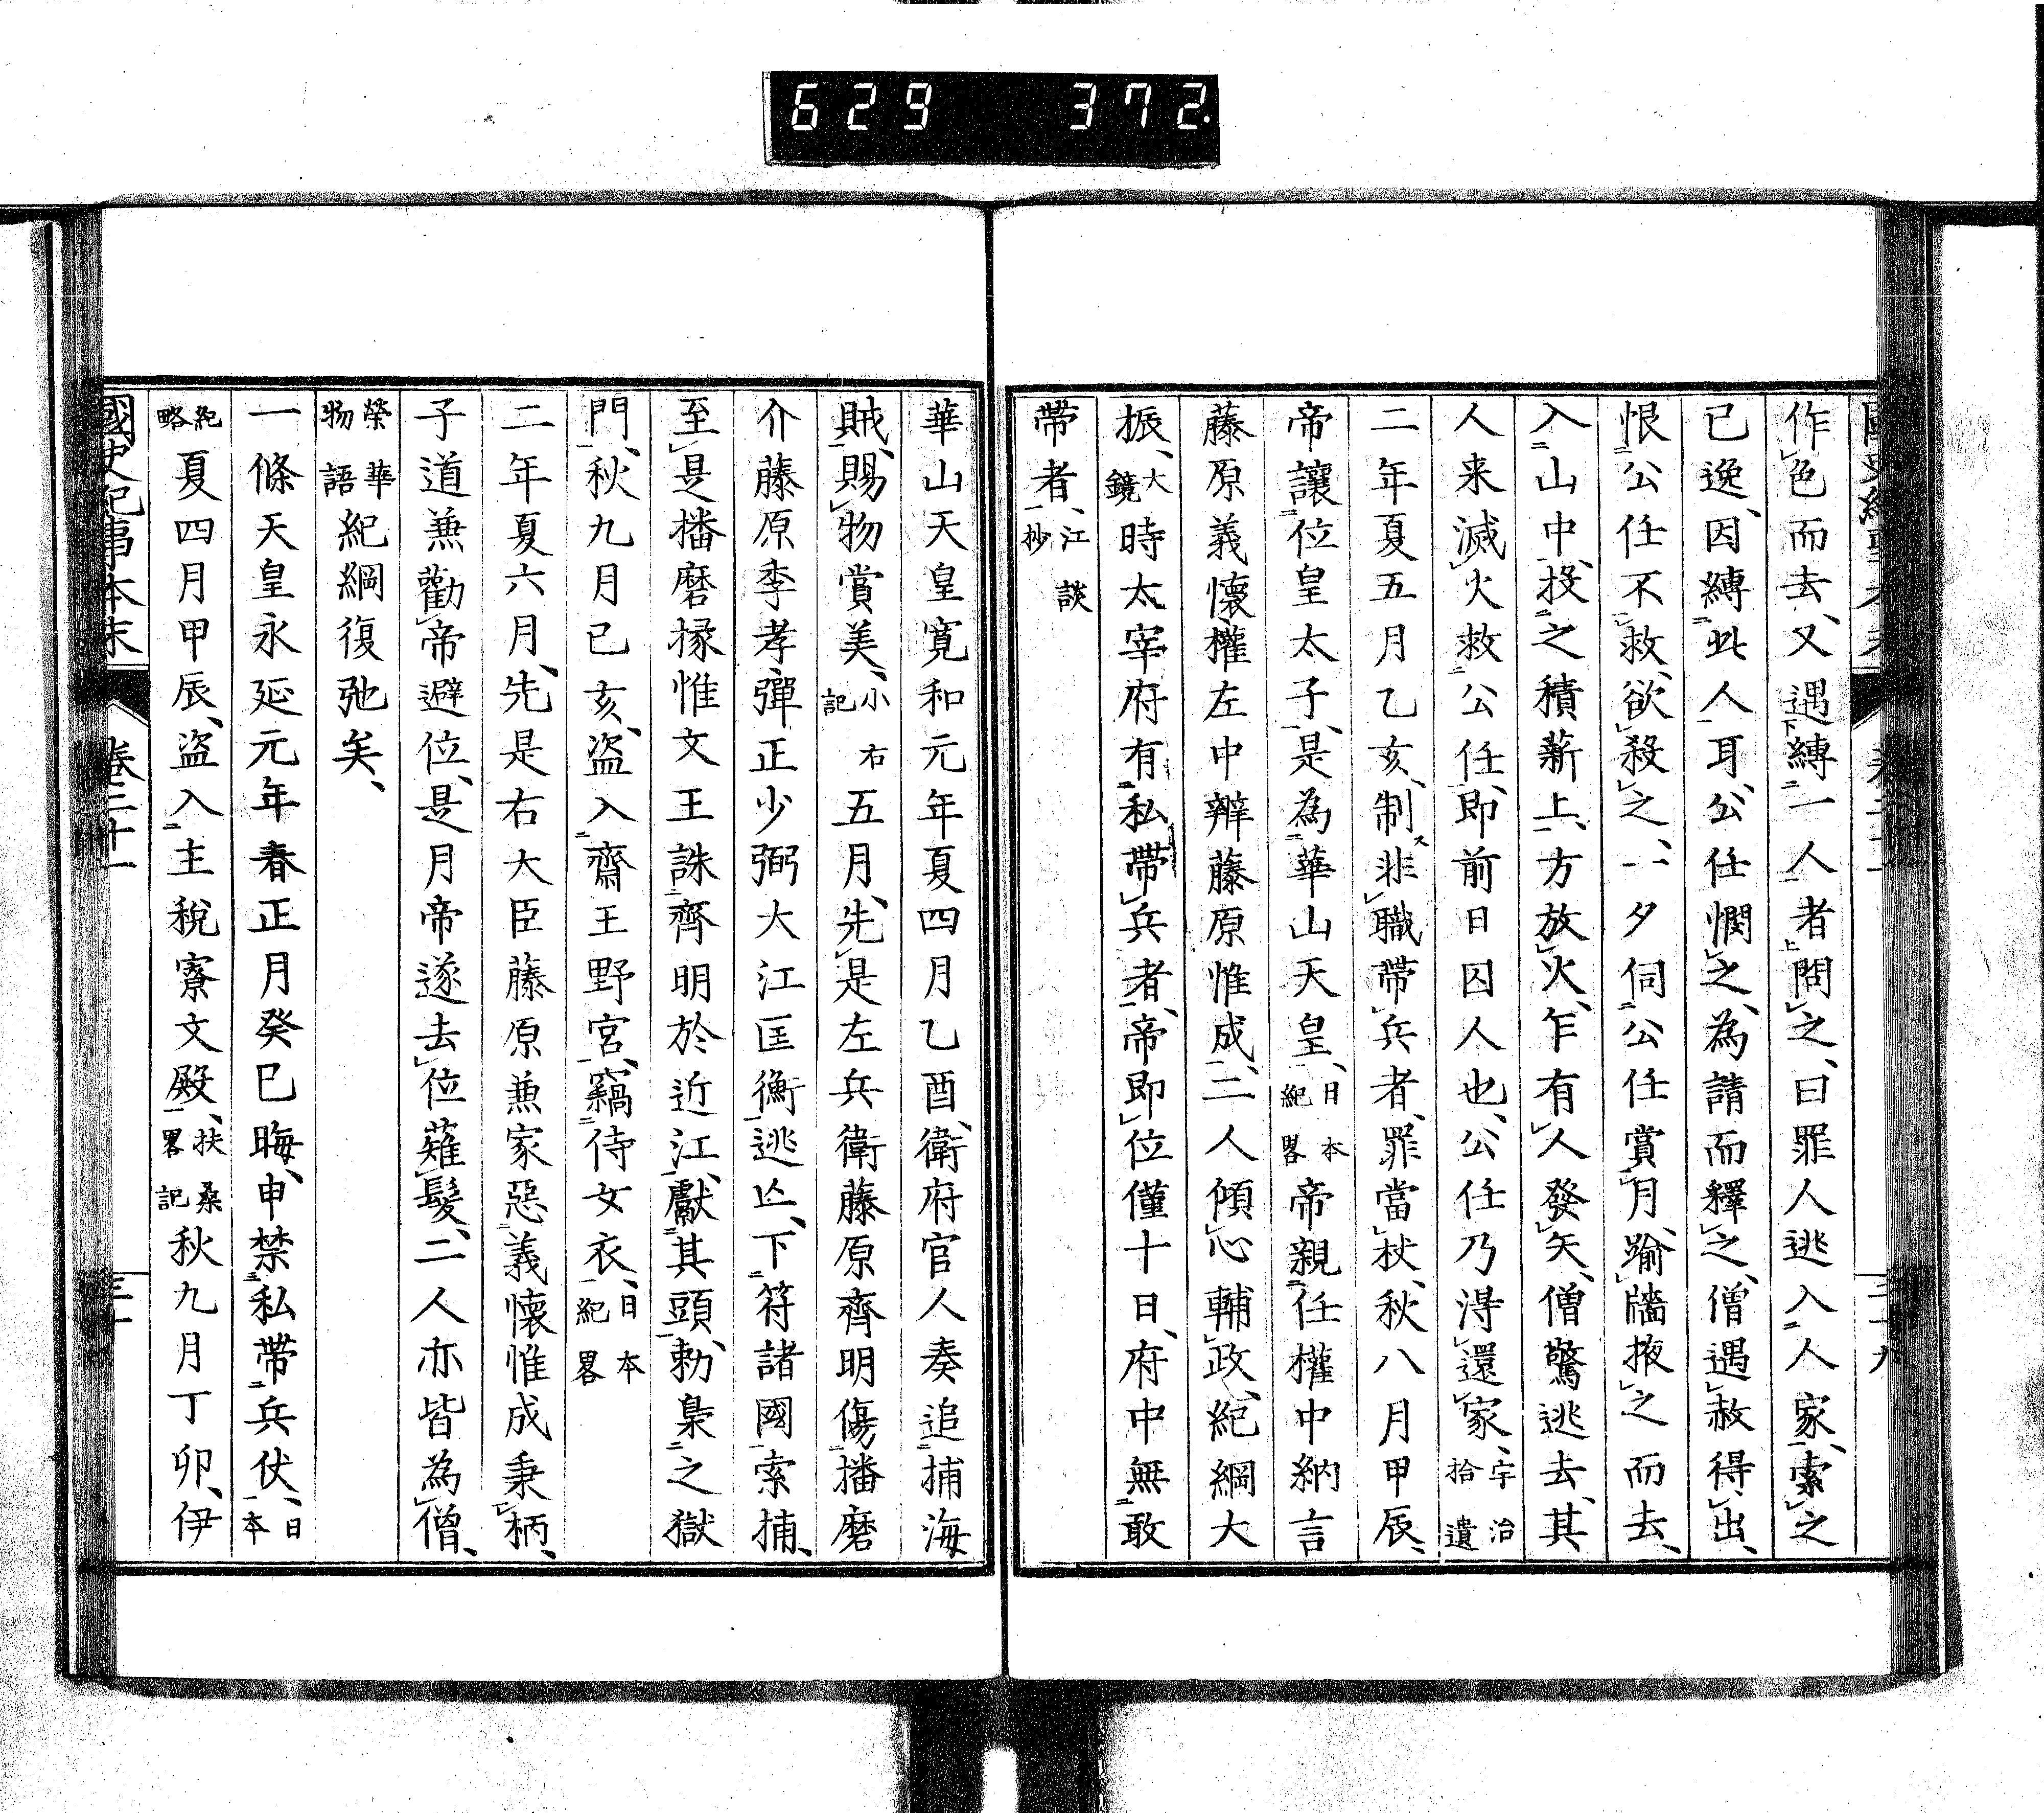 629 372.
作色而去、又遇縛一人者問之、曰罪人逃入人家、索之
已逸、因縛此人耳、公任憫之、為請而釋之、僧遇赦得出、
恨公任不救、欲殺之、一夕伺公任賞月、踰牆掖之而去、
入山中、投之積薪上、方放火、乍有人發矢、僧驚逃去、其
人来滅火救公任、即前日囚人也、公任乃得還家、宇治拾遺
二年夏五月乙亥、制非職帶兵者、罪當杖、秋八月甲辰、
帝讓位皇太子、是為華山天皇、日本紀畧帝親任權中納言
藤原義懷權左中辨藤原惟成、二人傾心輔政、紀綱大
振、大鏡時太宰府有私帶兵者、帝即位僅十日、府中無敢
帶者、江談抄
華山天皇寬和元年夏四月乙酉、衛府官人奏追捕海
賊、賜物賞美、小右記五月、先是左兵衛藤原齊明傷播磨
介藤原季孝、彈正少弼大江匡衡逃亾、下符諸國索捕、
至是播磨掾惟文王誅齊明於近江、獻其頭、勅梟之獄
門、秋九月己亥、盜入齋王野宮、竊侍女衣、日本紀畧
二年夏六月、先是右大臣藤原兼家惡義懷惟成秉柄、
子道兼勸帝避位、是月帝遂去位薙髮、二人亦皆為僧、
榮華物語紀綱復弛矣、
一條天皇永延元年春正月癸巳晦、申禁私帶兵仗、日本
紀略夏四月甲辰、盜入主稅寮文殿、扶桑畧記秋九月丁卯、伊
國史紀事本末 卷三十一